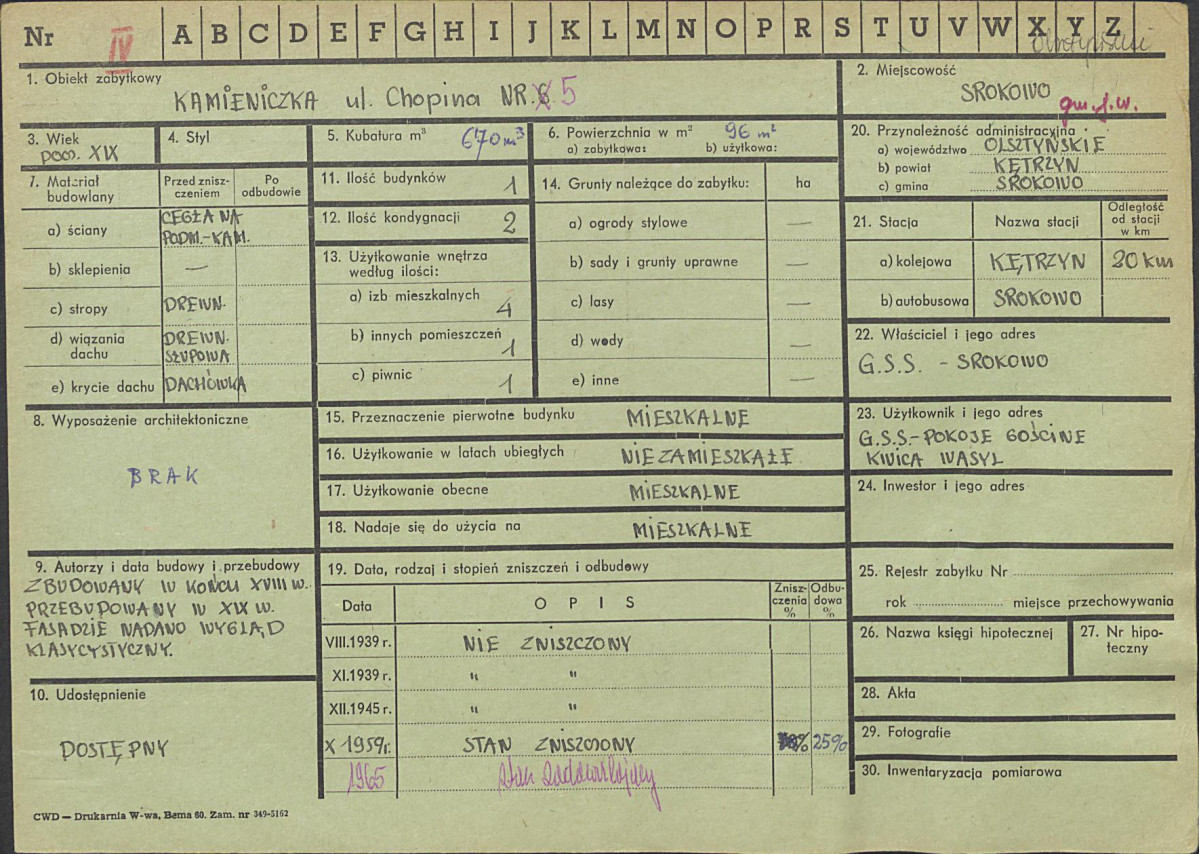 Nr IV A B C D E F G H I J K L M N O P R S T U V W X Y Z
1. Obiekt zabytkowy
KAMIENICZKA ul. Chopina NR. 5
2. Miejscowość
SROKOWO
gm. j.w.
3. Wiek
pocz. XIX
4. Styl
5. Kubatura m³ 670 m³
6. Powierzchnia w m² 96 m²
a) zabytkowa: b) użytkowa:
20. Przynależność administracyjna
a) województwo OLSZTYŃSKIE
b) powiat KĘTRZYN
c) gmina SROKOWO
7. Materiał budowlany
Przed zniszczeniem
Po odbudowie
a) ściany CEGŁA NA
PODM.-KAM.
b) sklepienia —
c) stropy DREWN.
d) wiązania dachu DREWN.
SŁUPOWA
e) krycie dachu DACHÓWKA
11. Ilość budynków 1
12. Ilość kondygnacji 2
13. Użytkowanie wnętrza
według ilości:
a) izb mieszkalnych 4
b) innych pomieszczeń 1
c) piwnic 1
14. Grunty należące do zabytku: ha
a) ogrody stylowe —
b) sady i grunty uprawne —
c) lasy —
d) wody —
e) inne —
21. Stacja Nazwa stacji Odległość
od stacji
w km
a) kolejowa KĘTRZYN 20 km
b) autobusowa SROKOWO
22. Właściciel i jego adres
G.S.S. - SROKOWO
8. Wyposażenie architektoniczne
BRAK
15. Przeznaczenie pierwotne budynku MIESZKALNE
16. Użytkowanie w latach ubiegłych NIEZAMIESZKAŁE
17. Użytkowanie obecne MIESZKALNE
18. Nadaje się do użycia na MIESZKALNE
23. Użytkownik i jego adres
G.S.S.-POKOJE GOŚCINE
KWICA WASYL
24. Inwestor i jego adres
9. Autorzy i data budowy i przebudowy
ZBUDOWANY W KOŃCU XVIII W.
PRZEBUDOWANY W XIX W.
FASADZIE NADANO WYGLĄD
KLASYCYSTYCZNY.
10. Udostępnienie
DOSTĘPNY
19. Data, rodzaj i stopień zniszczeń i odbudowy
Data OPIS Zniszczenia % Odbudowa %
VIII.1939 r. NIE ZNISZCZONY
XI.1939 r. " "
XII.1945 r. " "
X 1959r. STAN ZNISZCZONY 25%
1965 stan zadawalający
25. Rejestr zabytku Nr
rok miejsce przechowywania
26. Nazwa księgi hipotecznej
27. Nr hipoteczny
28. Akta
29. Fotografie
30. Inwentaryzacja pomiarowa
CWD — Drukarnia W-wa, Bema 60. Zam. nr 349-5162